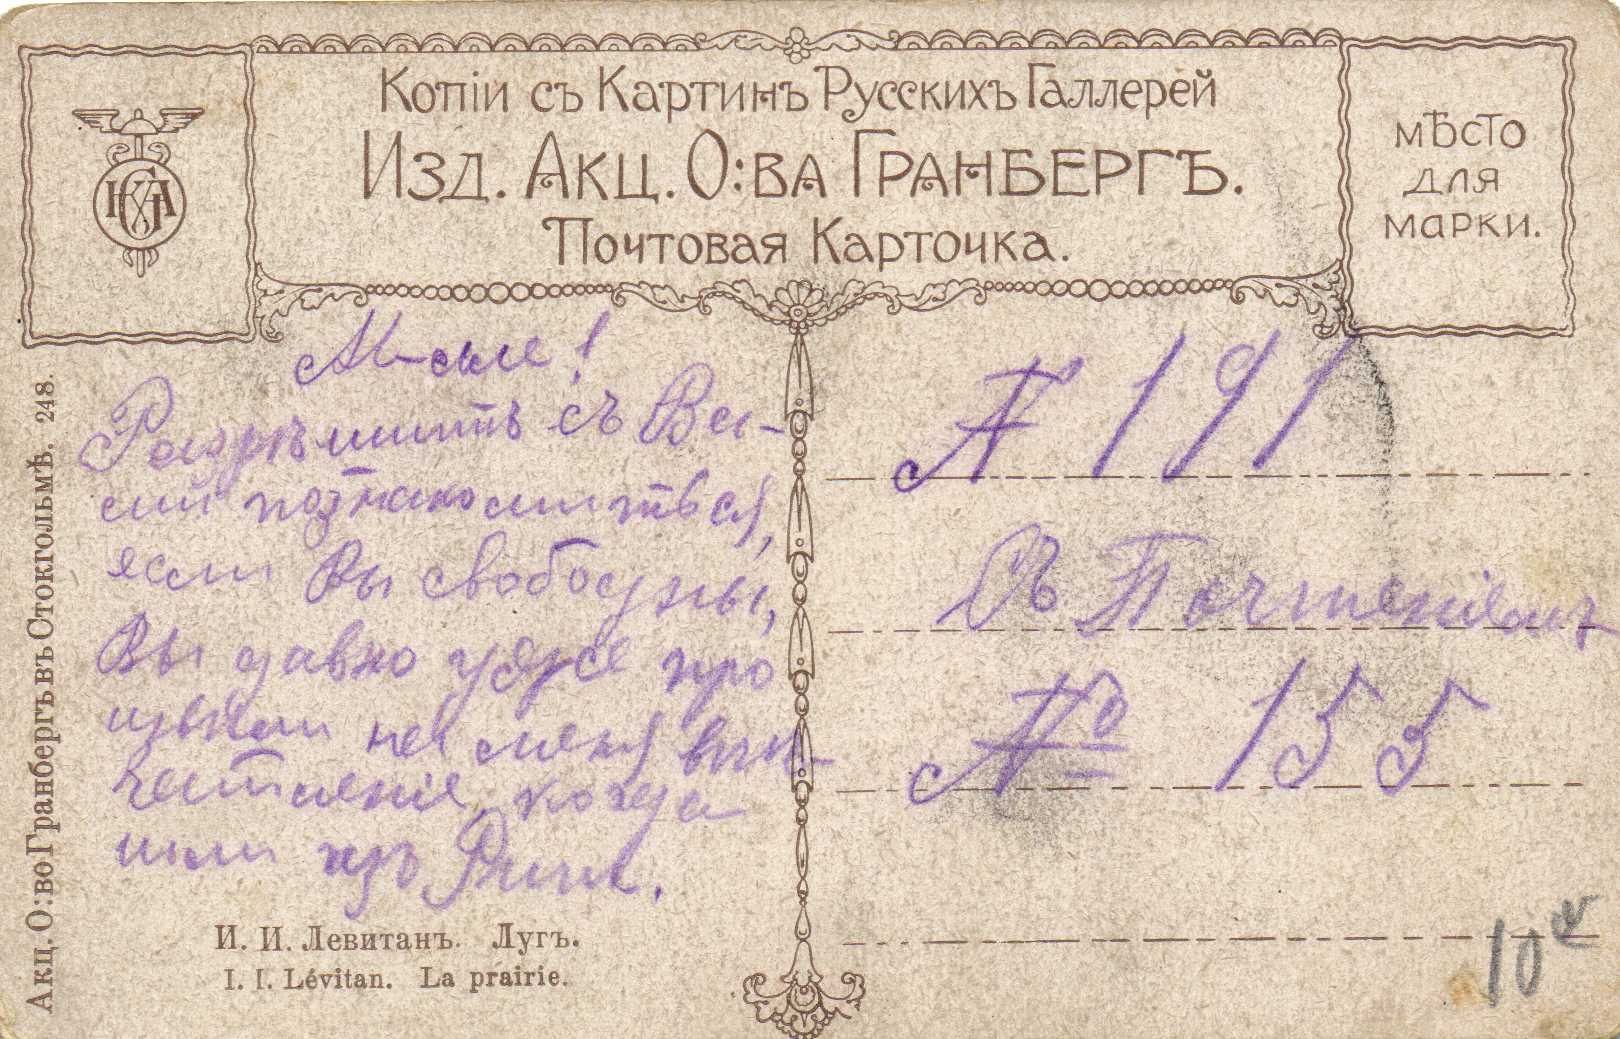 Копіи съ Картинъ Русскихъ Галлерей
Изд. Акц. О:ва Гранбергъ.
Почтовая Карточка.
мѣсто
для
марки.
Акц. О:во Гранбергъ въ Стокгольмѣ. 248.
М-сме!
Разрѣшитѣ съ Ва-
ми познакомиться,
если Вы свободны,
Вы давно уже про
извели на меня впе-
чатленіе, когда
шли изъ
И. И. Левитанъ. Лугъ.
I. I. Lévitan. La prairie.
№ 191
Съ Почтеніемъ
№ 155
10